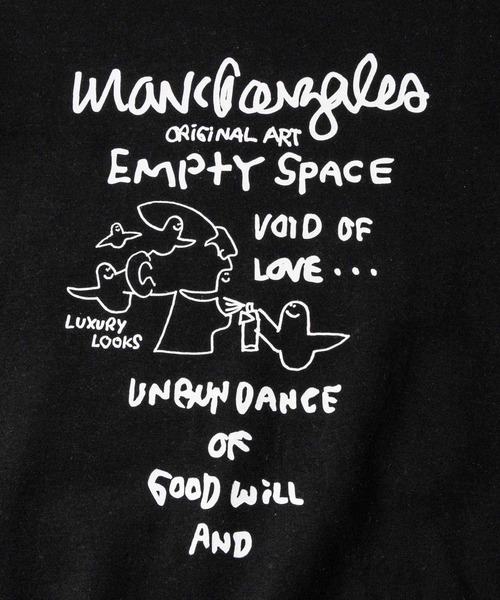 MarkGonzales
ORiGiNAL ART
EMPTY SPACE
VOID OF
LOVE...
LUXURY
LOOKS
UNBUNDANCE
OF
GOOD WiLL
AND